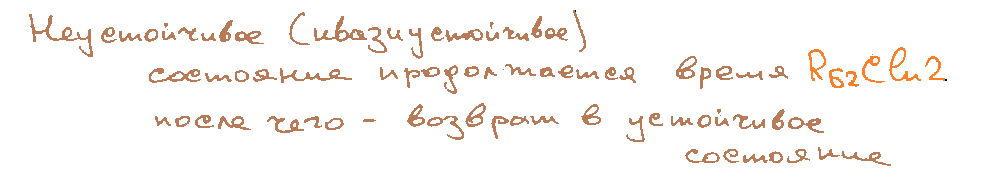 Неустойчивое (квазиустойчивое)
состояние продолжается время Rб2Cln2
после чего - возврат в устойчивое
состояние